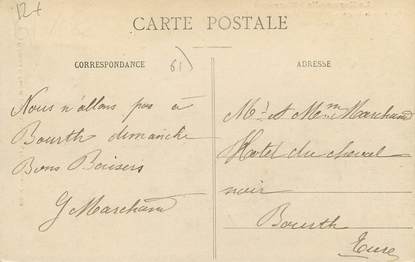 12+
CARTE POSTALE
CORRESPONDANCE
61)
ADRESSE
Nous n'allons pas à
Bourth dimanche
Bons Baisers
G Marchand
Mr et Mme Marchand
Hotel du cheval
noir
Bourth
Eure